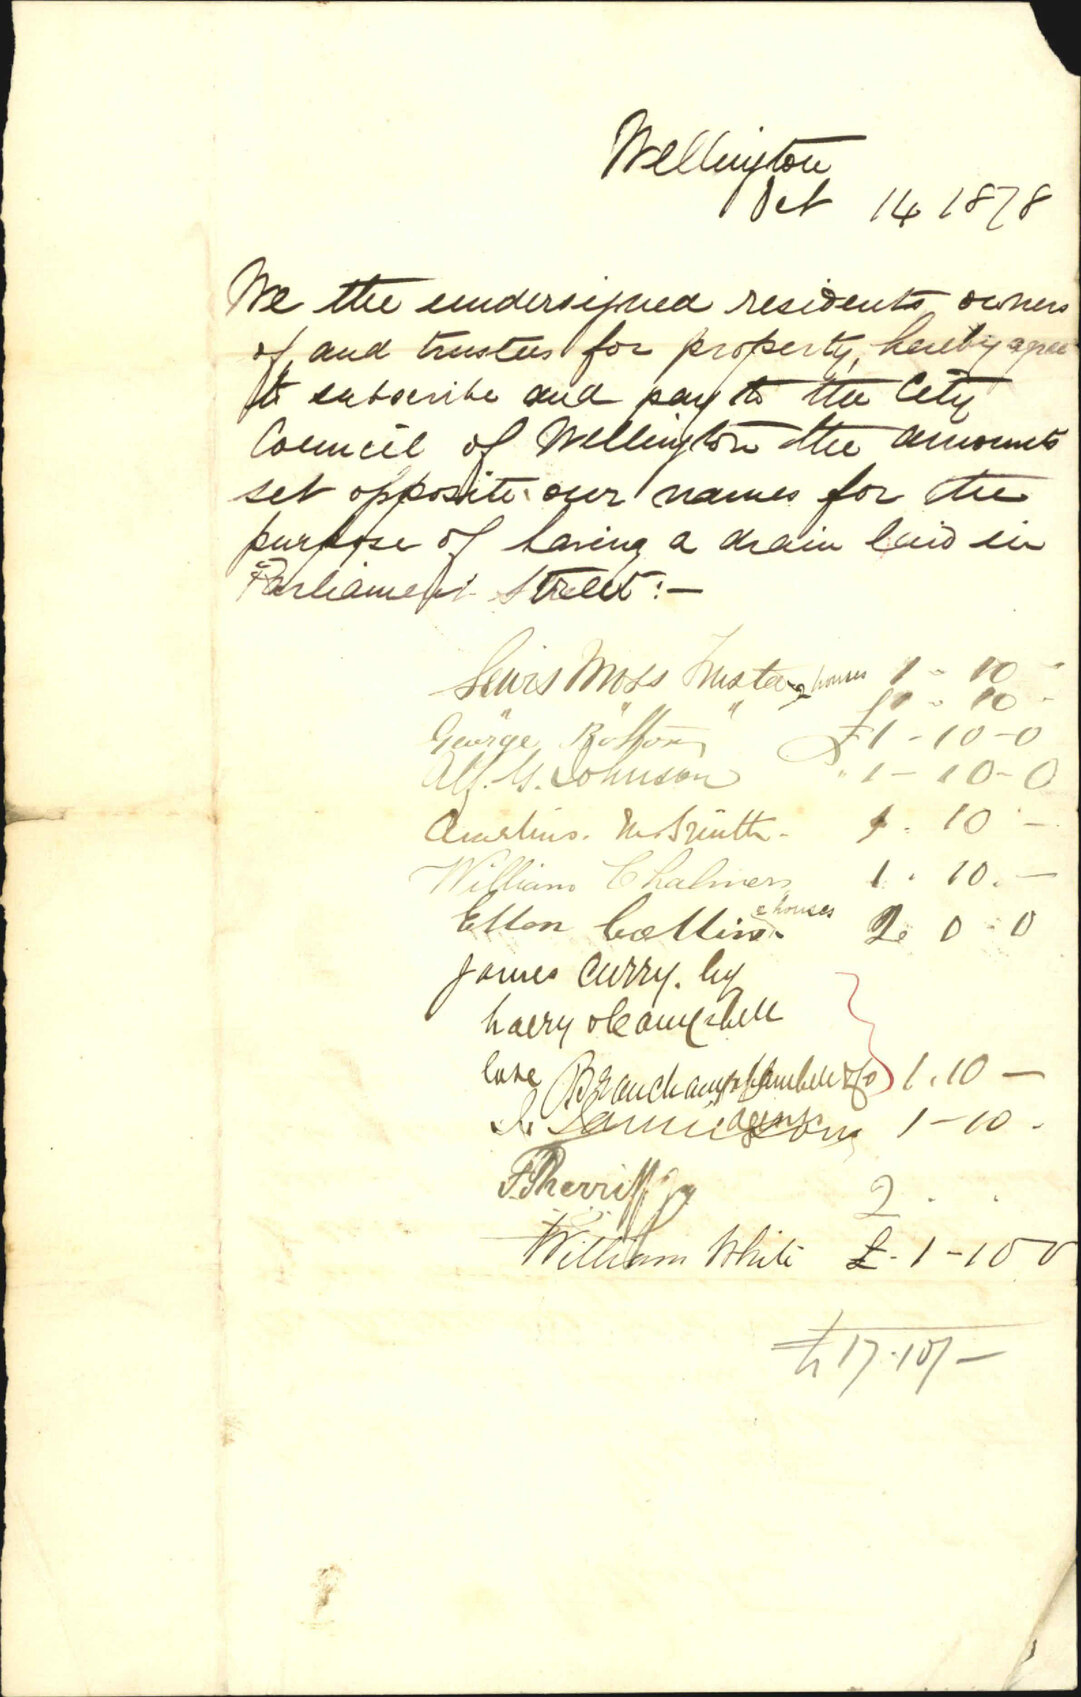 Wellington
Oct 14 1878
We the undersigned residents owners
of, and trustees for property, hereby agree
to subscribe and pay to the City
Council of Wellington the amounts
set opposite our names for the
purpose of having a drain laid in
Parliament Street:—
Lewis Moss Trustee 2 houses 1 - 10 -
" " " £1 - 10 -
George £1-10-0
Alf. G. Johnson " 1-10-0
1. 10 -
William Chalmers 1. 10. -
Collins 2 houses 2. 0. 0
James Curry. by
Campbell
late Beauchamp Campbell & Co 1.10 -
agents
J. Jamieson 1-10.
F. Sherriff 2 . .
William White £.1-10 0
£17.10/-